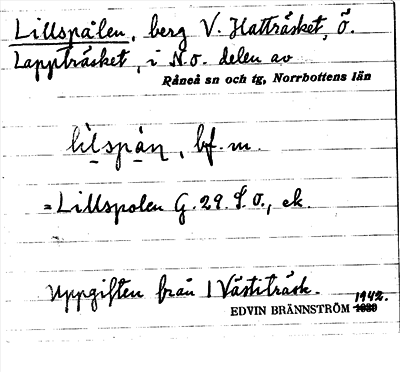 Lillspålen, berg V. Hatträsket, Ö.
Lappträsket, i N.O. delen av
Råneå sn och tg, Norrbottens län
lìlspàn, bf. m.
= Lillspolen G. 29. S.O., ek.
Uppgiften från 1 Västiträsk.
1942.
EDVIN BRÄNNSTRÖM 1939